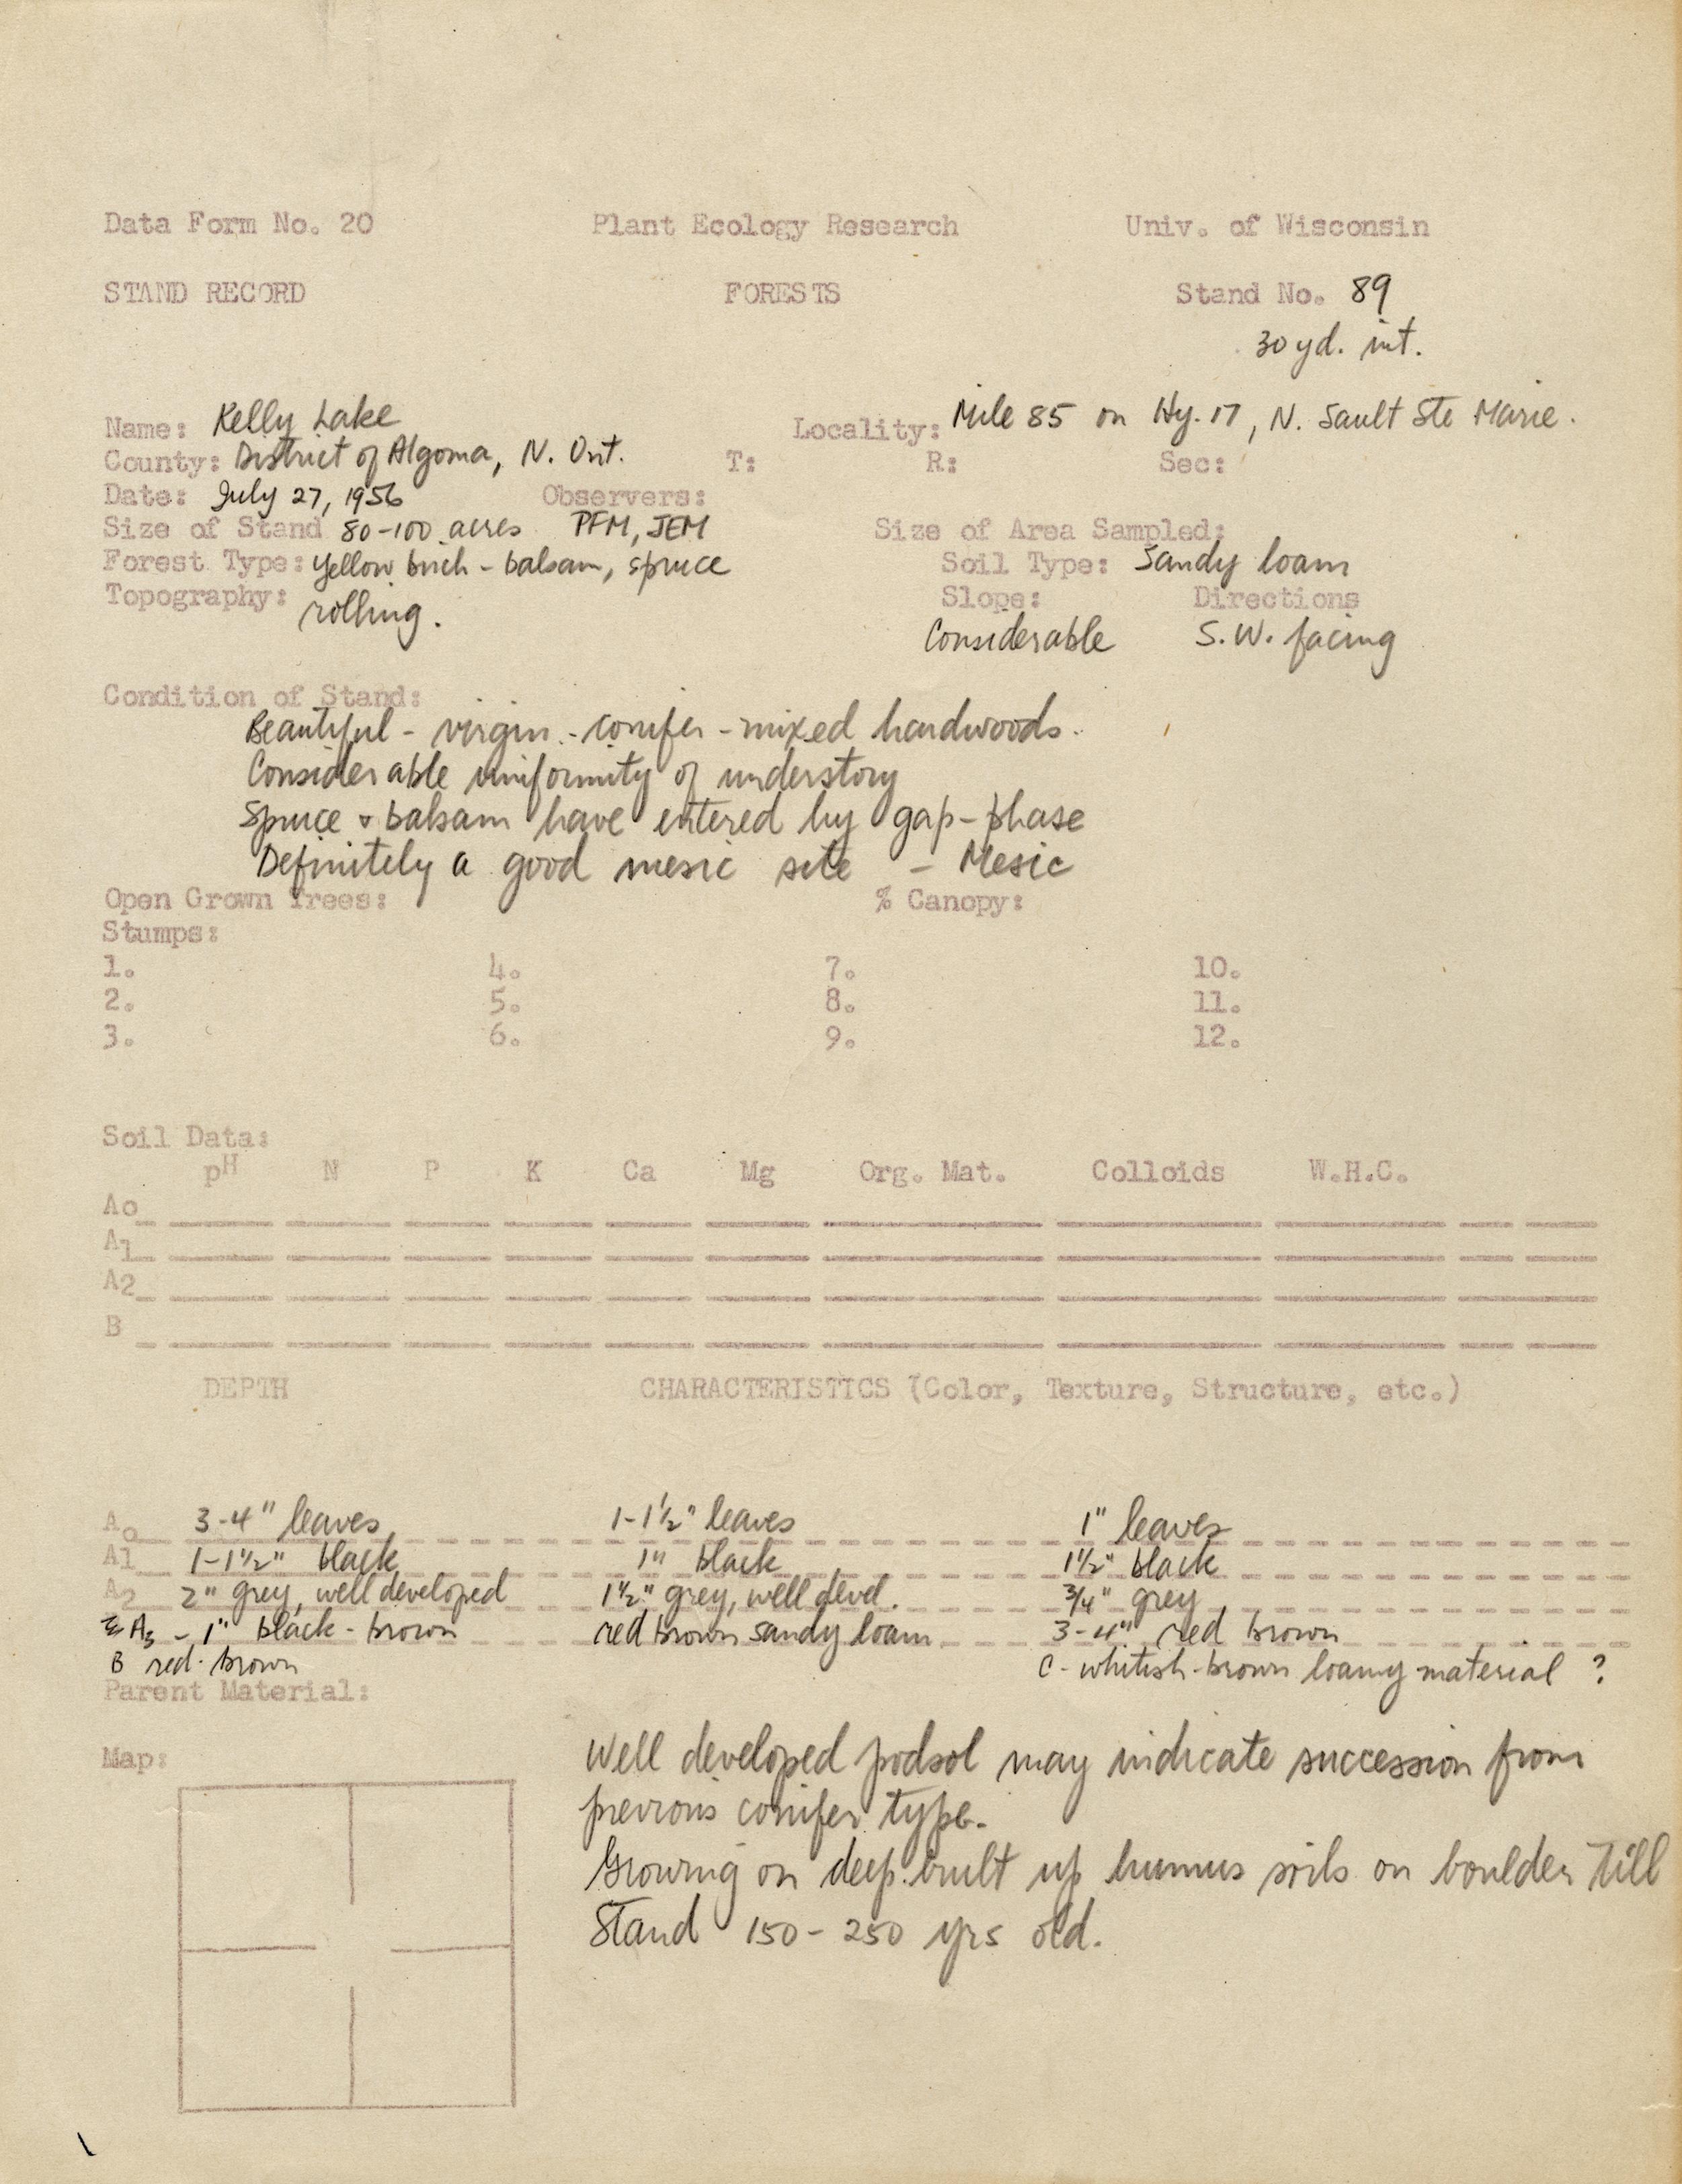 Data Form No. 20 Plant Ecology Research Univ. of Wisconsin
STAND RECORD FORESTS Stand No. 89
30 yd. int.
Name: Kelly Lake Locality: Mile 85 on Hy. 17, N. Sault Ste Marie.
County: District of Algoma, N. Ont. T: R: Sec:
Date: July 27, 1956 Observers:
Size of Stand 80-100 acres PFM, JEM Size of Area Sampled:
Forest Type: Yellow birch - balsam, spruce Soil Type: Sandy loam
Topography: rolling. Slope: Directions
Considerable S.W. facing
Condition of Stand:
Beautiful - virgin - conifer - mixed hardwoods.
Considerable uniformity of understory
Spruce & balsam have entered by gap-phase
Definitely a good mesic site - Mesic
Open Grown Trees: % Canopy:
Stumps:
1. 4. 7. 10.
2. 5. 8. 11.
3. 6. 9. 12.
Soil Data:
pH N P K Ca Mg Org. Mat. Colloids W.H.C.
Ao
A1
A2
B
DEPTH CHARACTERISTICS (Color, Texture, Structure, etc.)
Ao 3-4" leaves 1-1½" leaves 1" leaves
A1 1-1½" black 1" black 1½" black
A2 2" grey, well developed 1½" grey, well devel. ¾" grey
A3 - 1" black-brown red brown sandy loam 3-4" red brown
B red-brown C - whitish-brown loamy material ?
Parent Material:
Map:
Well developed podsol may indicate succession from
previous conifer type.
Growing on deep built up humus soils on boulder till
Stand 150-250 yrs old.